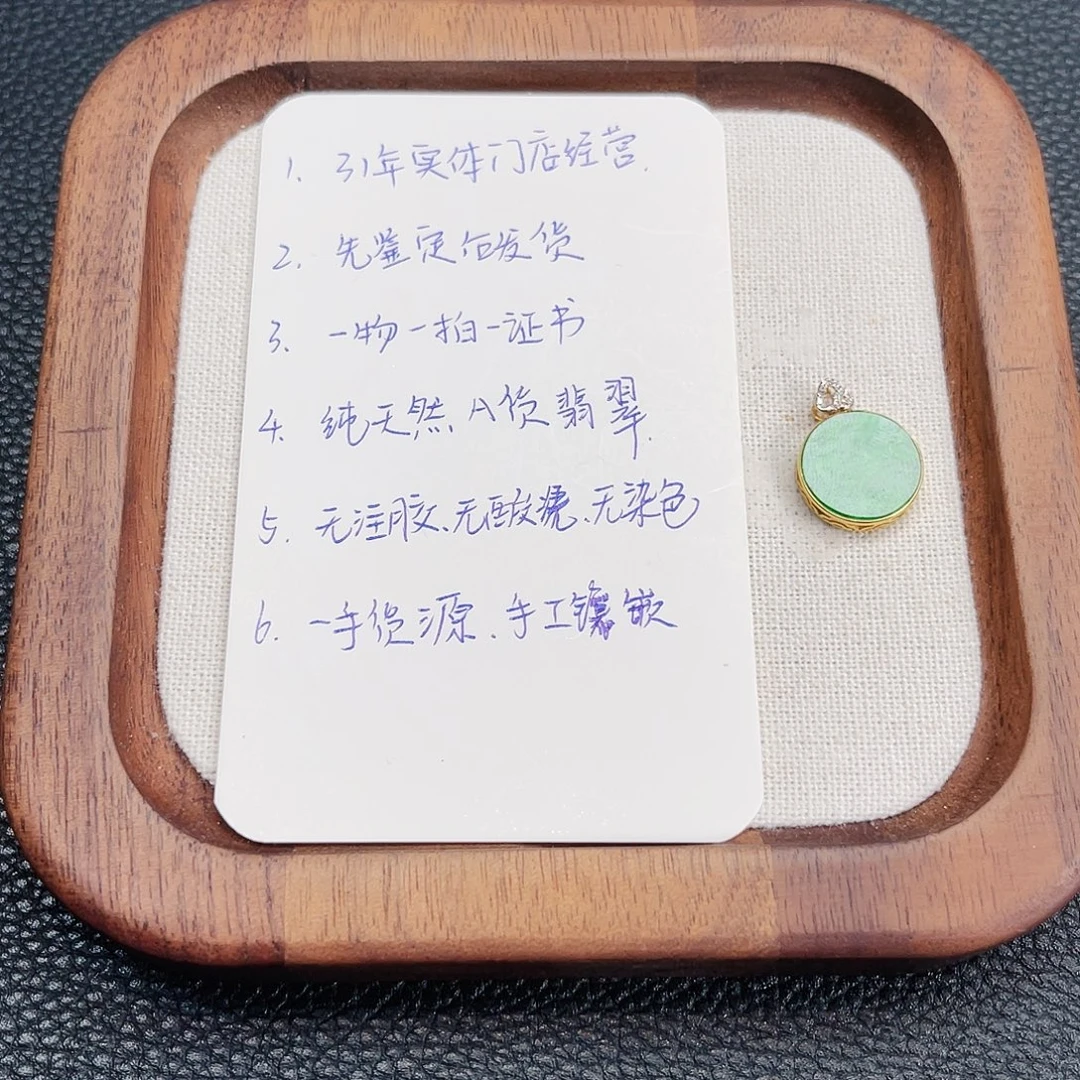 1. 31年实体门店经营.
2. 先鉴定后发货
3. 一物一拍一证书
4. 纯天然A货翡翠.
5. 无注胶、无酸烫、无染色
6. 一手货源、手工镶嵌